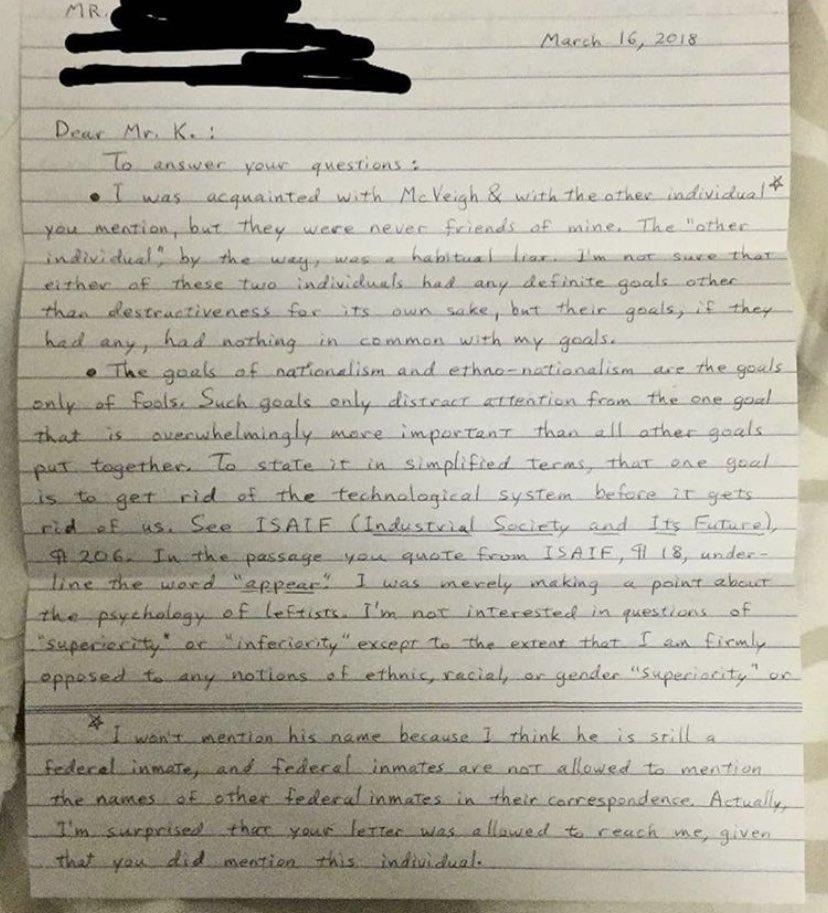 MR.
March 16, 2018
Dear Mr. K. :
To answer your questions :
• I was acquainted with McVeigh & with the other individual☆
you mention, but they were never friends of mine. The "other
individual", by the way, was a habitual liar. I'm not sure that
either of these two individuals had any definite goals other
than destructiveness for its own sake, but their goals, if they
had any, had nothing in common with my goals.
• The goals of nationalism and ethno-nationalism are the goals
only of fools. Such goals only distract attention from the one goal
that is overwhelmingly more important than all other goals
put together. To state it in simplified terms, that one goal
is to get rid of the technological system before it gets
rid of us. See ISAIF (Industrial Society and Its Future),
¶ 206. In the passage you quote from ISAIF, ¶ 18, under-
line the word "appear". I was merely making a point about
the psychology of leftists. I'm not interested in questions of
"superiority" or "inferiority" except to the extent that I am firmly
opposed to any notions of ethnic, racial, or gender "superiority" or
☆ I won't mention his name because I think he is still a
federal inmate, and federal inmates are not allowed to mention
the names of other federal inmates in their correspondence. Actually,
I'm surprised that your letter was allowed to reach me, given
that you did mention this individual.